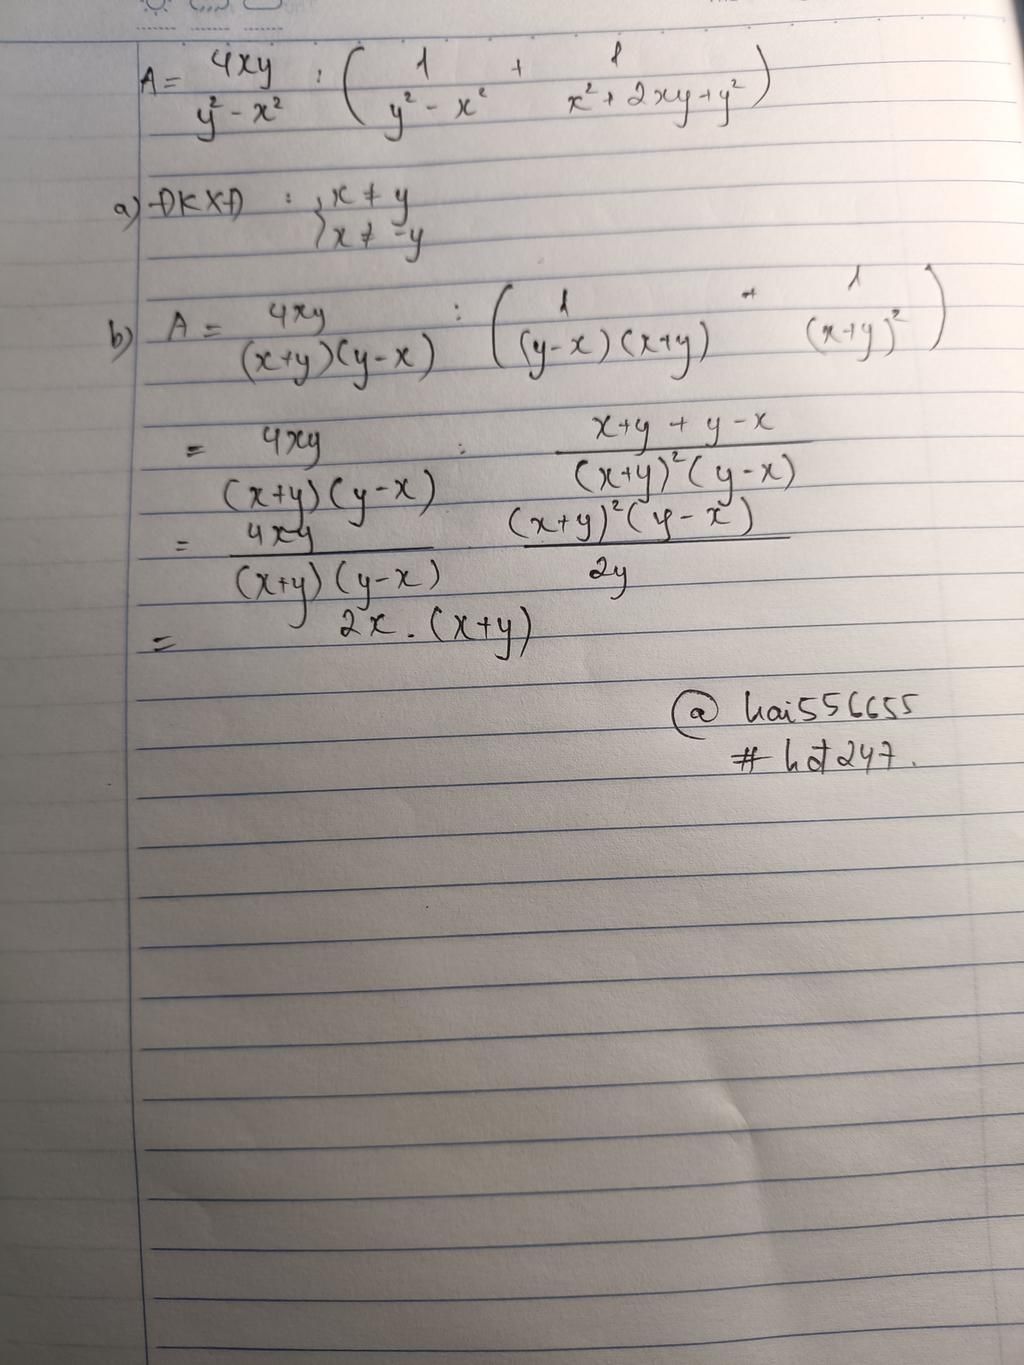 A = 4xy / y² - x² : ( 1 / y² - x² + 1 / x² + 2xy + y² )
a) ĐKXĐ : { x ≠ y
x ≠ -y
b) A = 4xy / (x+y)(y-x) : ( 1 / (y-x)(x+y) + 1 / (x+y)² )
= 4xy / (x+y)(y-x) : x+y + y-x / (x+y)²(y-x)
= 4xy / (x+y)(y-x) . (x+y)²(y-x) / 2y
= 2x . (x+y)
@ hai556655
# hd247.